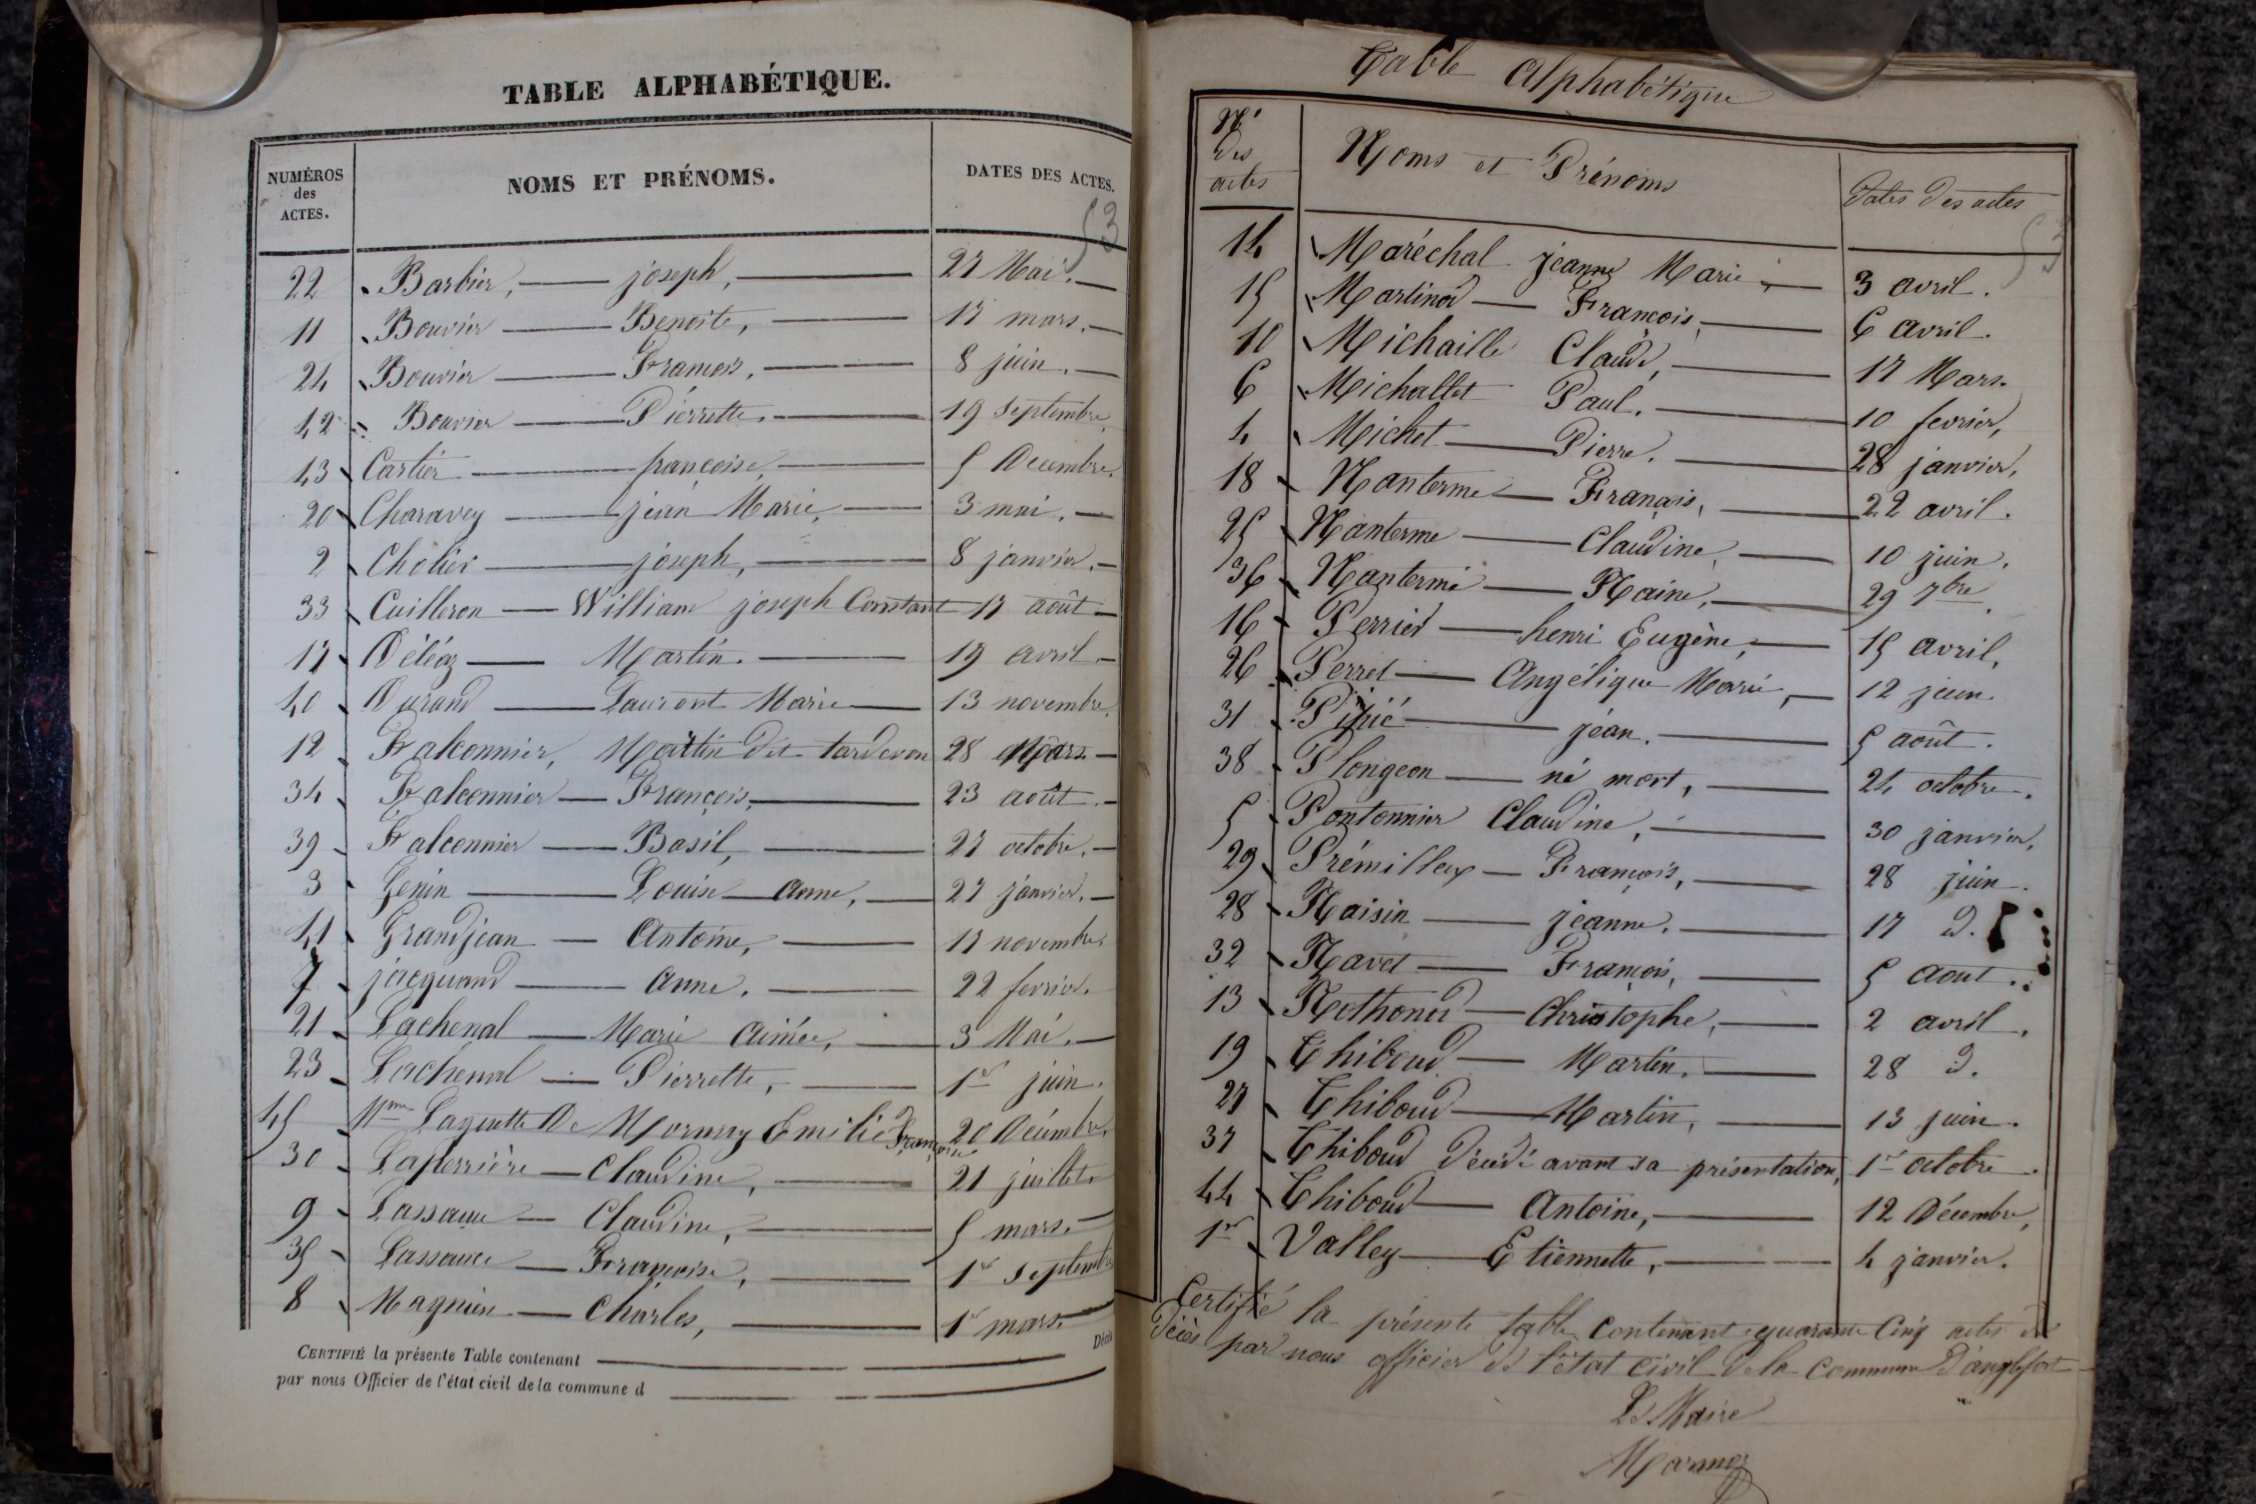 TABLE ALPHABÉTIQUE.
NUMÉROS des ACTES. NOMS ET PRÉNOMS. DATES DES ACTES.
53
22 Barbier, joseph, 27 Mai.
11 Bouvier Benoite, 17 mars.
24 Bouvier François, 8 juin.
42 Bouvier Pierrette, 19 septembre,
43 Cartier françoise, 5 Décembre.
20 Charavey jean Marie, 3 mai.
2 Cholier joseph, 8 janvier.
33 Cuilleron William joseph Constant 17 août
17 Déléaz Martin. 19 avril
40 Durand Laurent Marie 13 novembre.
12 Falconnier, Martin dit tardevon 28 Mars
34 Falconnier François, 23 août.
39 Falconnier Basil, 27 octobre.
3 Genin Louise anne, 27 janvier.
41 Grandjean Antoine, 17 novembre.
7 jacquand anne. 22 fevrier.
21 Lachenal Marie aimée, 3 Mai.
23 Lachenal Pierrette, 1er juin.
45 Mme Laguette De Mornay Emilie Françoise 20 Décembre,
30 Laperrière Claudine, 21 juillet.
9 Lassauce Claudine, 5 mars.
35 Lassauce Françoise, 1er septembre
8 Magnien Charles, 1er mars.
CERTIFIÉ la présente Table contenant Décès
par nous Officier de l'état civil de la commune d
Table Alphabétique
No des actes Noms et Prénoms Dates des actes
53
14 Maréchal jeanne Marie, 3 avril.
15 Martinod François, 6 avril.
10 Michaille Claude, 17 Mars.
6 Michallet Paul. 10 fevrier,
4 Michet Pierre. 28 janvier,
18 Nanterme François, 22 avril.
25 Nanterme Claudine, 10 juin.
36 Nanterme Raine, 29 7bre.
16 Perrier henri Eugène, 15 avril,
26 Perret Angélique Marie, 12 juin.
31 Pipié jean. 5 août.
38 Plongeon né mort, 24 octobre.
5 Pontonnier Claudine, 30 janvier,
29 Prémilleux François, 28 juin.
28 Raisin jeanne. 17 d.
32 Ravet François, 5 aout.
13 Rothonod Christophe, 2 avril.
19 Thiboud Martin. 28 d.
27 Thiboud Martin, 13 juin.
37 Thiboud décédé avant sa présentation, 1er octobre.
44 Thiboud Antoine, 12 Décembre,
1er Valley Etiennette, 4 janvier.
Certifié la présente table contenant quarante Cinq actes de
décès par nous officier de l'état civil de la Commune d'anglefort
Le Maire